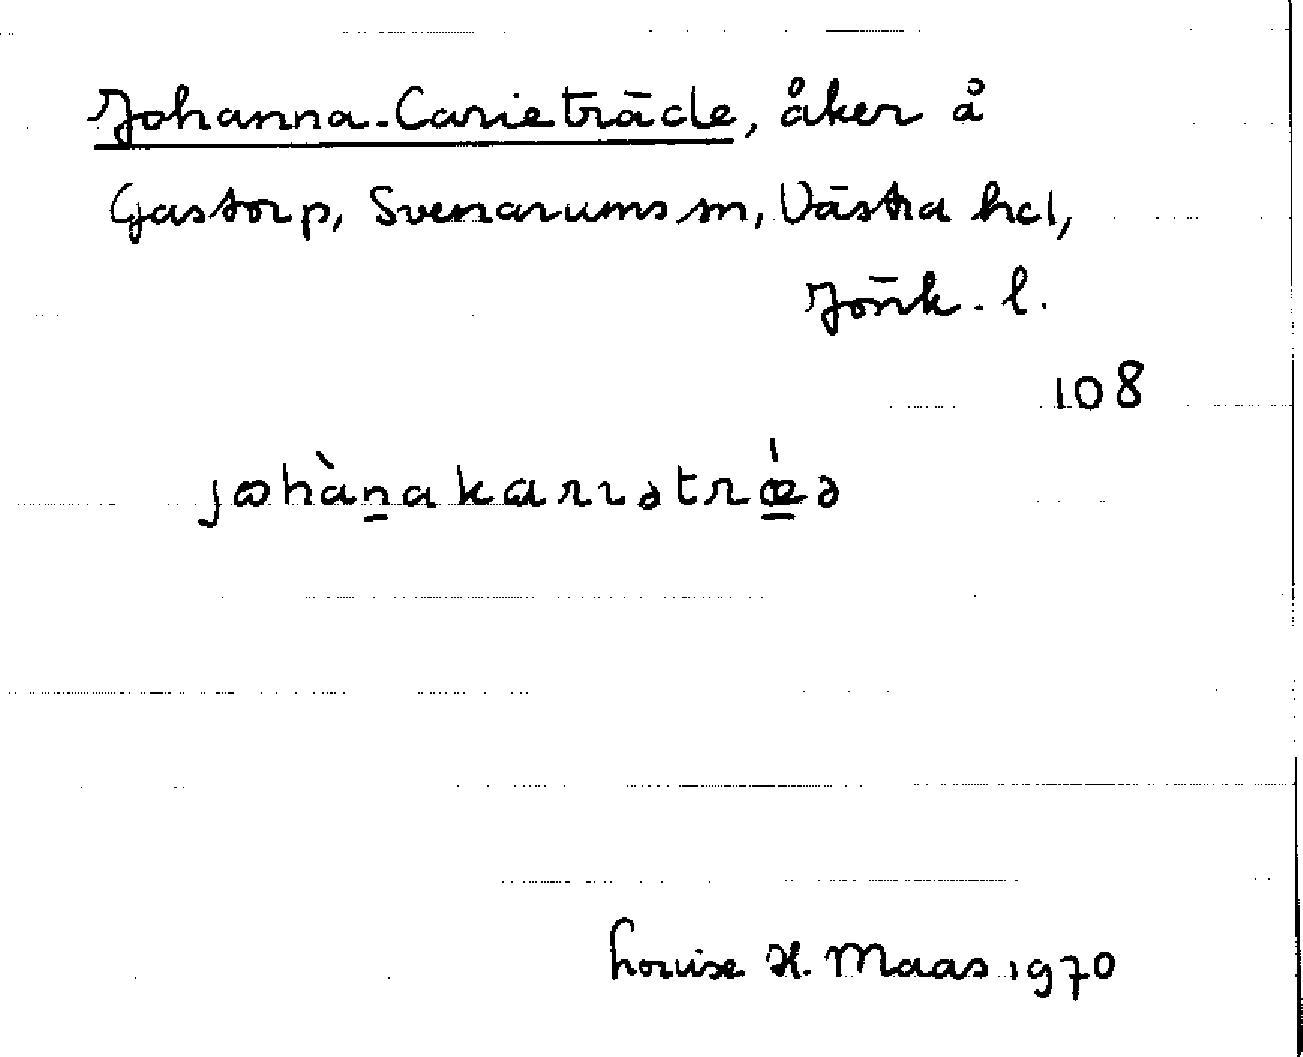 Johanna-Carieträde, åker å
Gastorp, Svenarums sn, Västra hd,
Jönk. l.
108
johàn̲akariətrœ̲́ə
Louise H. Maas 1970